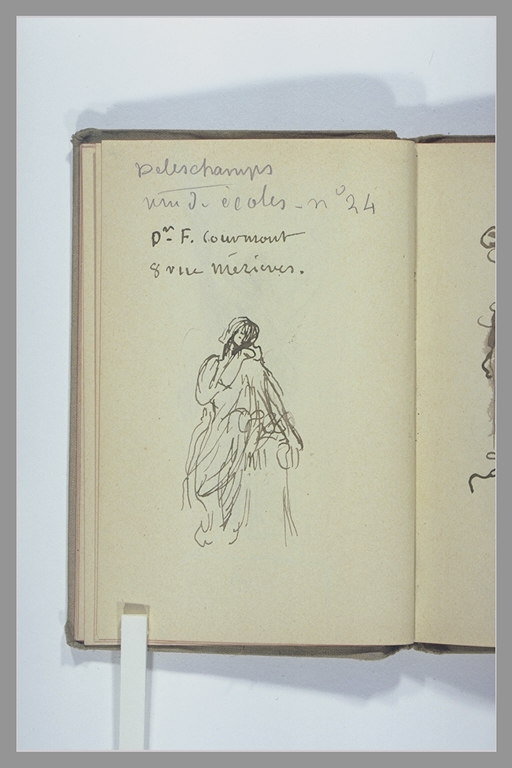 Deleschamps
rue d. écoles - n° 24
Dr F. Courmont
8 rue Mézières.